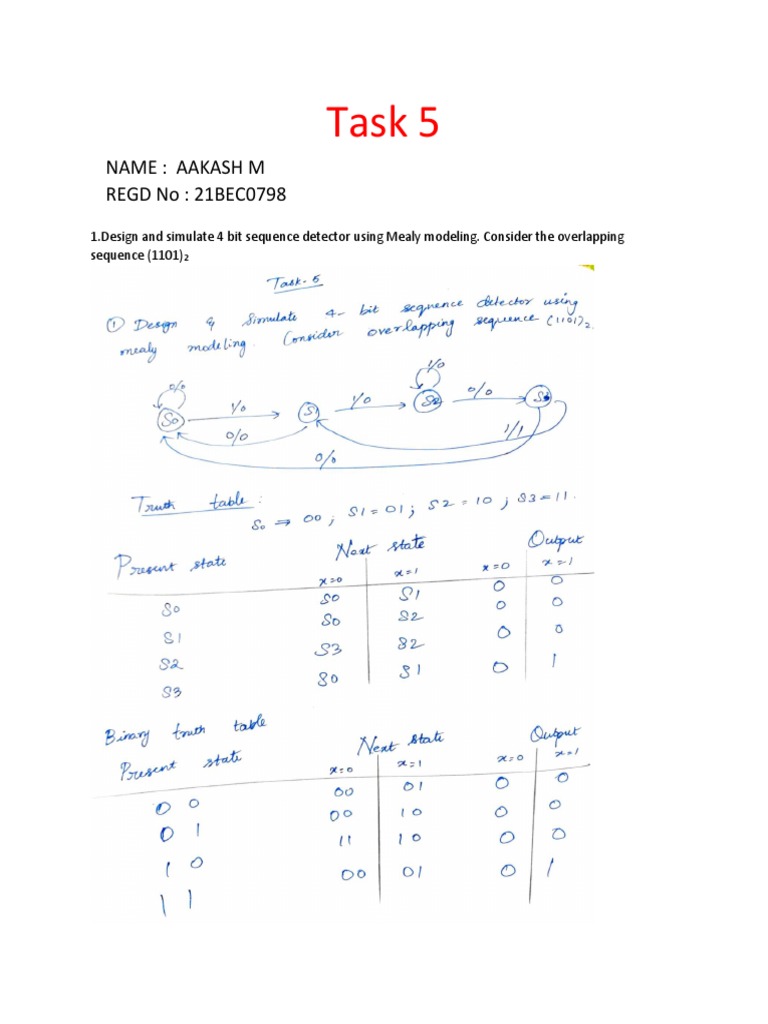 Task 5
NAME : AAKASH M
REGD No : 21BEC0798
1.Design and simulate 4 bit sequence detector using Mealy modeling. Consider the overlapping
sequence (1101)₂
Task-5
① Design & Simulate 4- bit sequence detector using
mealy modeling. Consider overlapping sequence (1101)₂.
0/0 1/0
S0 1/0 S1 1/0 S2 0/0 S3
0/0 1/1
0/0
Truth table :
S0 ⇒ 00 ; S1 = 01 ; S2 = 10 ; S3 = 11.
Present state Next state Output
x=0 x=1 x=0 x=1
S0 S0 S1 0 0
S1 S0 S2 0 0
S2 S3 S2 0 0
S3 S0 S1 0 1
Binary truth table
Present state Next state Output
x=0 x=1 x=0 x=1
0 0 00 01 0 0
0 1 00 10 0 0
1 0 11 10 0 0
1 1 00 01 0 1